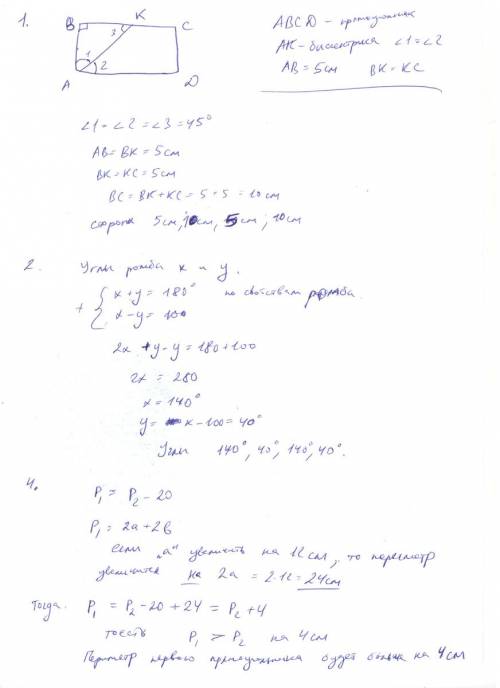 1.
B K C
3
1
2
A D
ABCD - прямоугольник
AK - биссектриса ∠1=∠2
AB = 5см BK = KC
∠1 = ∠2 = ∠3 = 45°
AB = BK = 5см
BK = KC = 5см
BC = BK + KC = 5 + 5 = 10см
стороны 5см, 10см, 5см, 10см
2. Углы ромба x и y.
+ { x + y = 180° по свойствам ромба.
x - y = 100
2x + y - y = 180 + 100
2x = 280
x = 140°
y = x - 100 = 40°
Углы 140°, 40°, 140°, 40°.
4.
P₁ = P₂ - 20
P₁ = 2a + 2b
если "a" увеличить на 12см, то периметр
увеличится на 2a = 2·12 = 24см
Тогда. P₁ = P₂ - 20 + 24 = P₂ + 4
тоесть P₁ > P₂ на 4см
Периметр первого прямоугольника будет больше на 4см